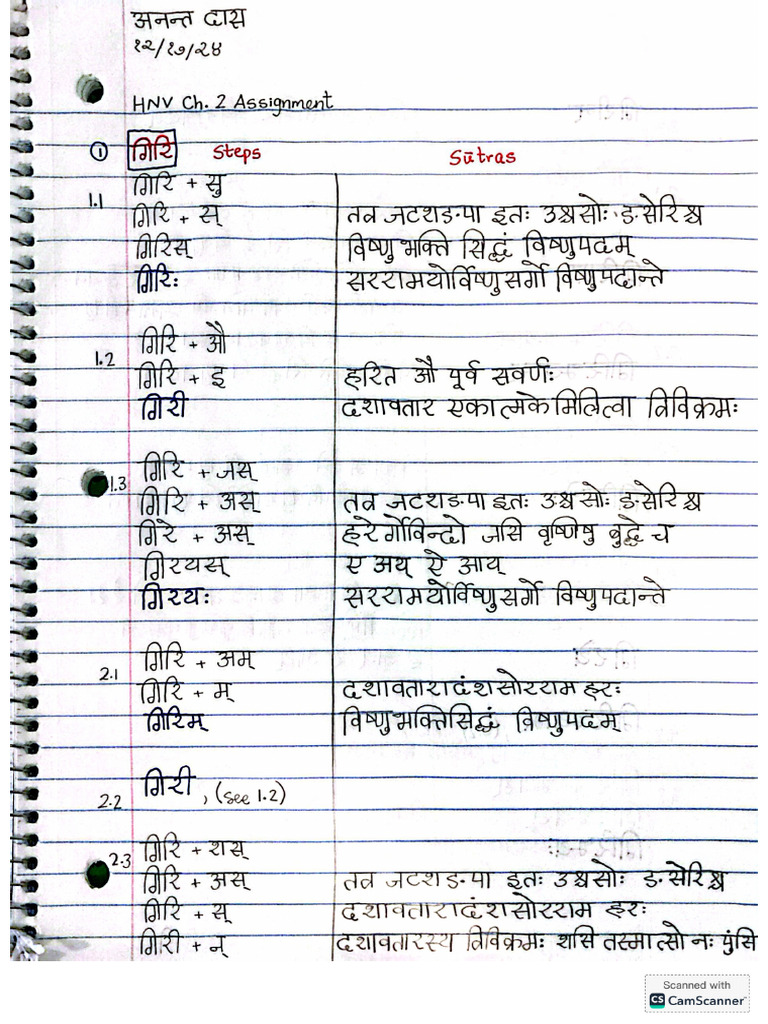 अनन्त दास
१२/१७/२४
HNV Ch. 2 Assignment
① गिरि Steps Sūtras
गिरि + सु
1.1 गिरि + स् तत्र जटशङपा इतः उश्चसोः ङसेरिश्च
गिरिस् विष्णुभक्ति सिद्धं विष्णुपदम्
गिरिः सररामयोर्विष्णुसर्गो विष्णुपदान्ते
1.2 गिरि + औ
गिरि + इ हरित औ पूर्व सवर्णः
गिरी दशावतार एकात्मके मिलित्वा त्रिविक्रमः
1.3 गिरि + जस्
गिरि + अस् तत्र जटशङपा इतः उश्चसोः ङसेरिश्च
गिरे + अस् हरेर्गोविन्दो जसि वृष्णिषु बुद्धे च
गिरयस् ए अय् ऐ आय्
गिरयः सररामयोर्विष्णुसर्गो विष्णुपदान्ते
2.1 गिरि + अम्
गिरि + म् दशावतारादंशसोरराम हरः
गिरिम् विष्णुभक्तिसिद्धं विष्णुपदम्
2.2 गिरी, (see 1.2)
2.3 गिरि + शस्
गिरि + अस् तत्र जटशङपा इतः उश्चसोः ङसेरिश्च
गिरि + स् दशावतारादंशसोरराम हरः
गिरी + न् दशावतारस्य त्रिविक्रमः शसि तस्मात्सो नः पुंसि
Scanned with
CS CamScanner